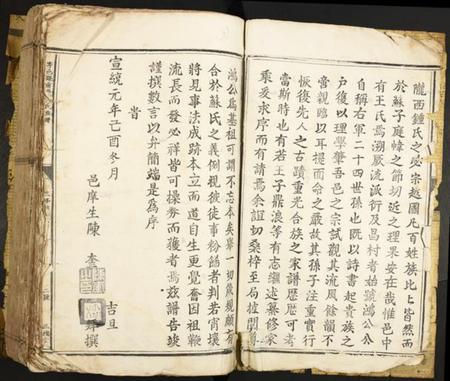 隴西鍾氏之必宗越國凡百姓族比比皆然而
於蘇子庭嶂之節切近之理果安在哉惟邑中
有王氏焉溯厥流派衍及昌村者始號鴻公公
自稱右軍二十四世孫也既以詩書起貴族之
户後以理學肇吾邑之宗試觀其流風餘韻不
啻親臨以耳提而命之嚴故其孫子注重實行
恢復先人之古蹟重光合族之家譜歷歷可考
當斯時也有若王子鼎浪等有志繼述纂修家
乘爰求序而有請焉余誼切桑梓至局
鴻公為基祖可謂不忘本矣舉一切幾規頗有
合於蘇氏之義例視彼徒事粉飾者判若宵壤
將見事法成跡本立而道自生更覺奮因祖鞭
流長而發必祥皆可操券而獲者焉兹譜告竣
謹撰數言以弁簡端是為序
旹
宣統元年己酉冬月 吉旦
邑庠生陳 奎 撰